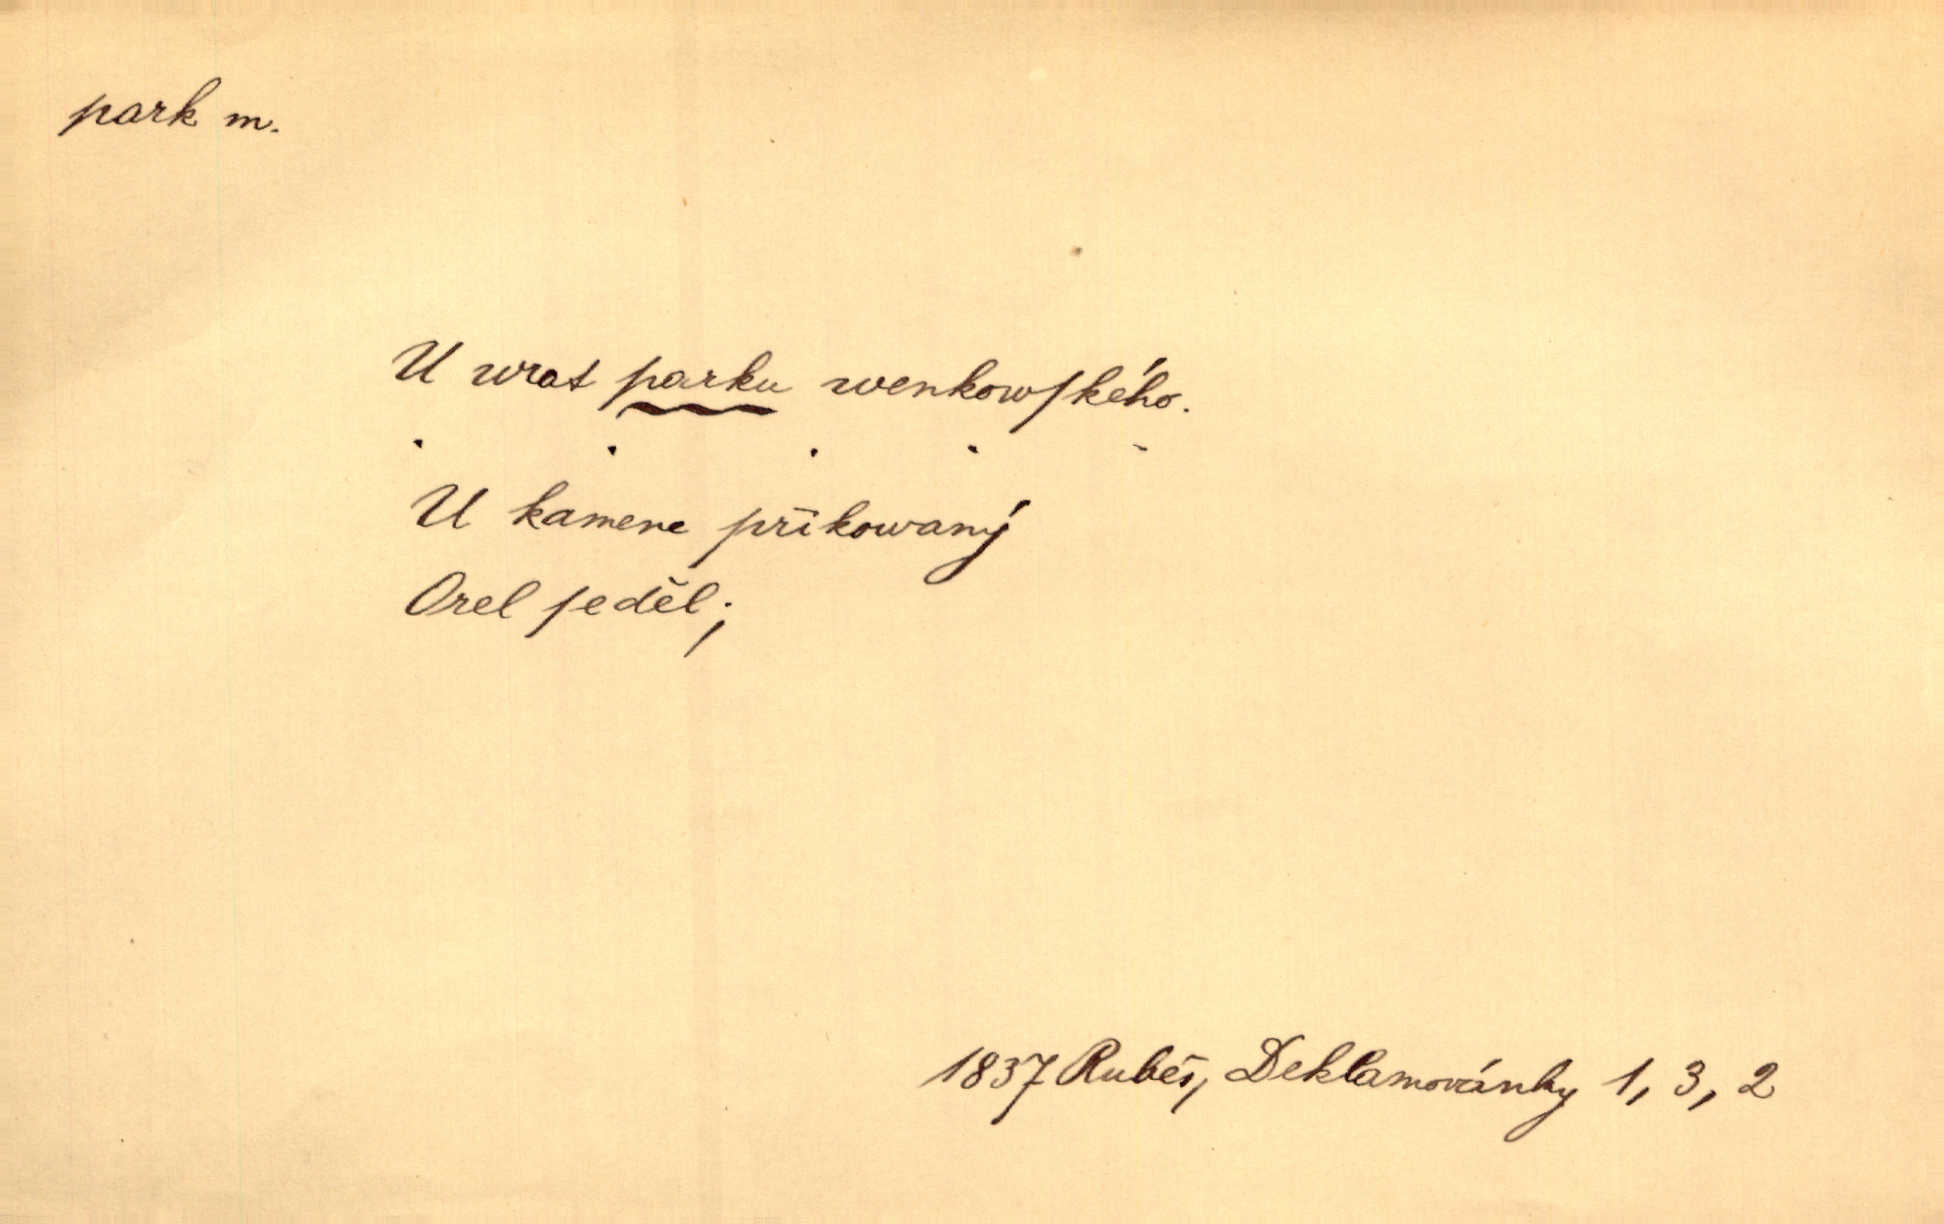 park m.
U wrat parku wenkowſkého.
. . . . .
U kamene přikowaný
Orel ſeděl;
1837 Rubeš, Deklamovánky 1, 3, 2